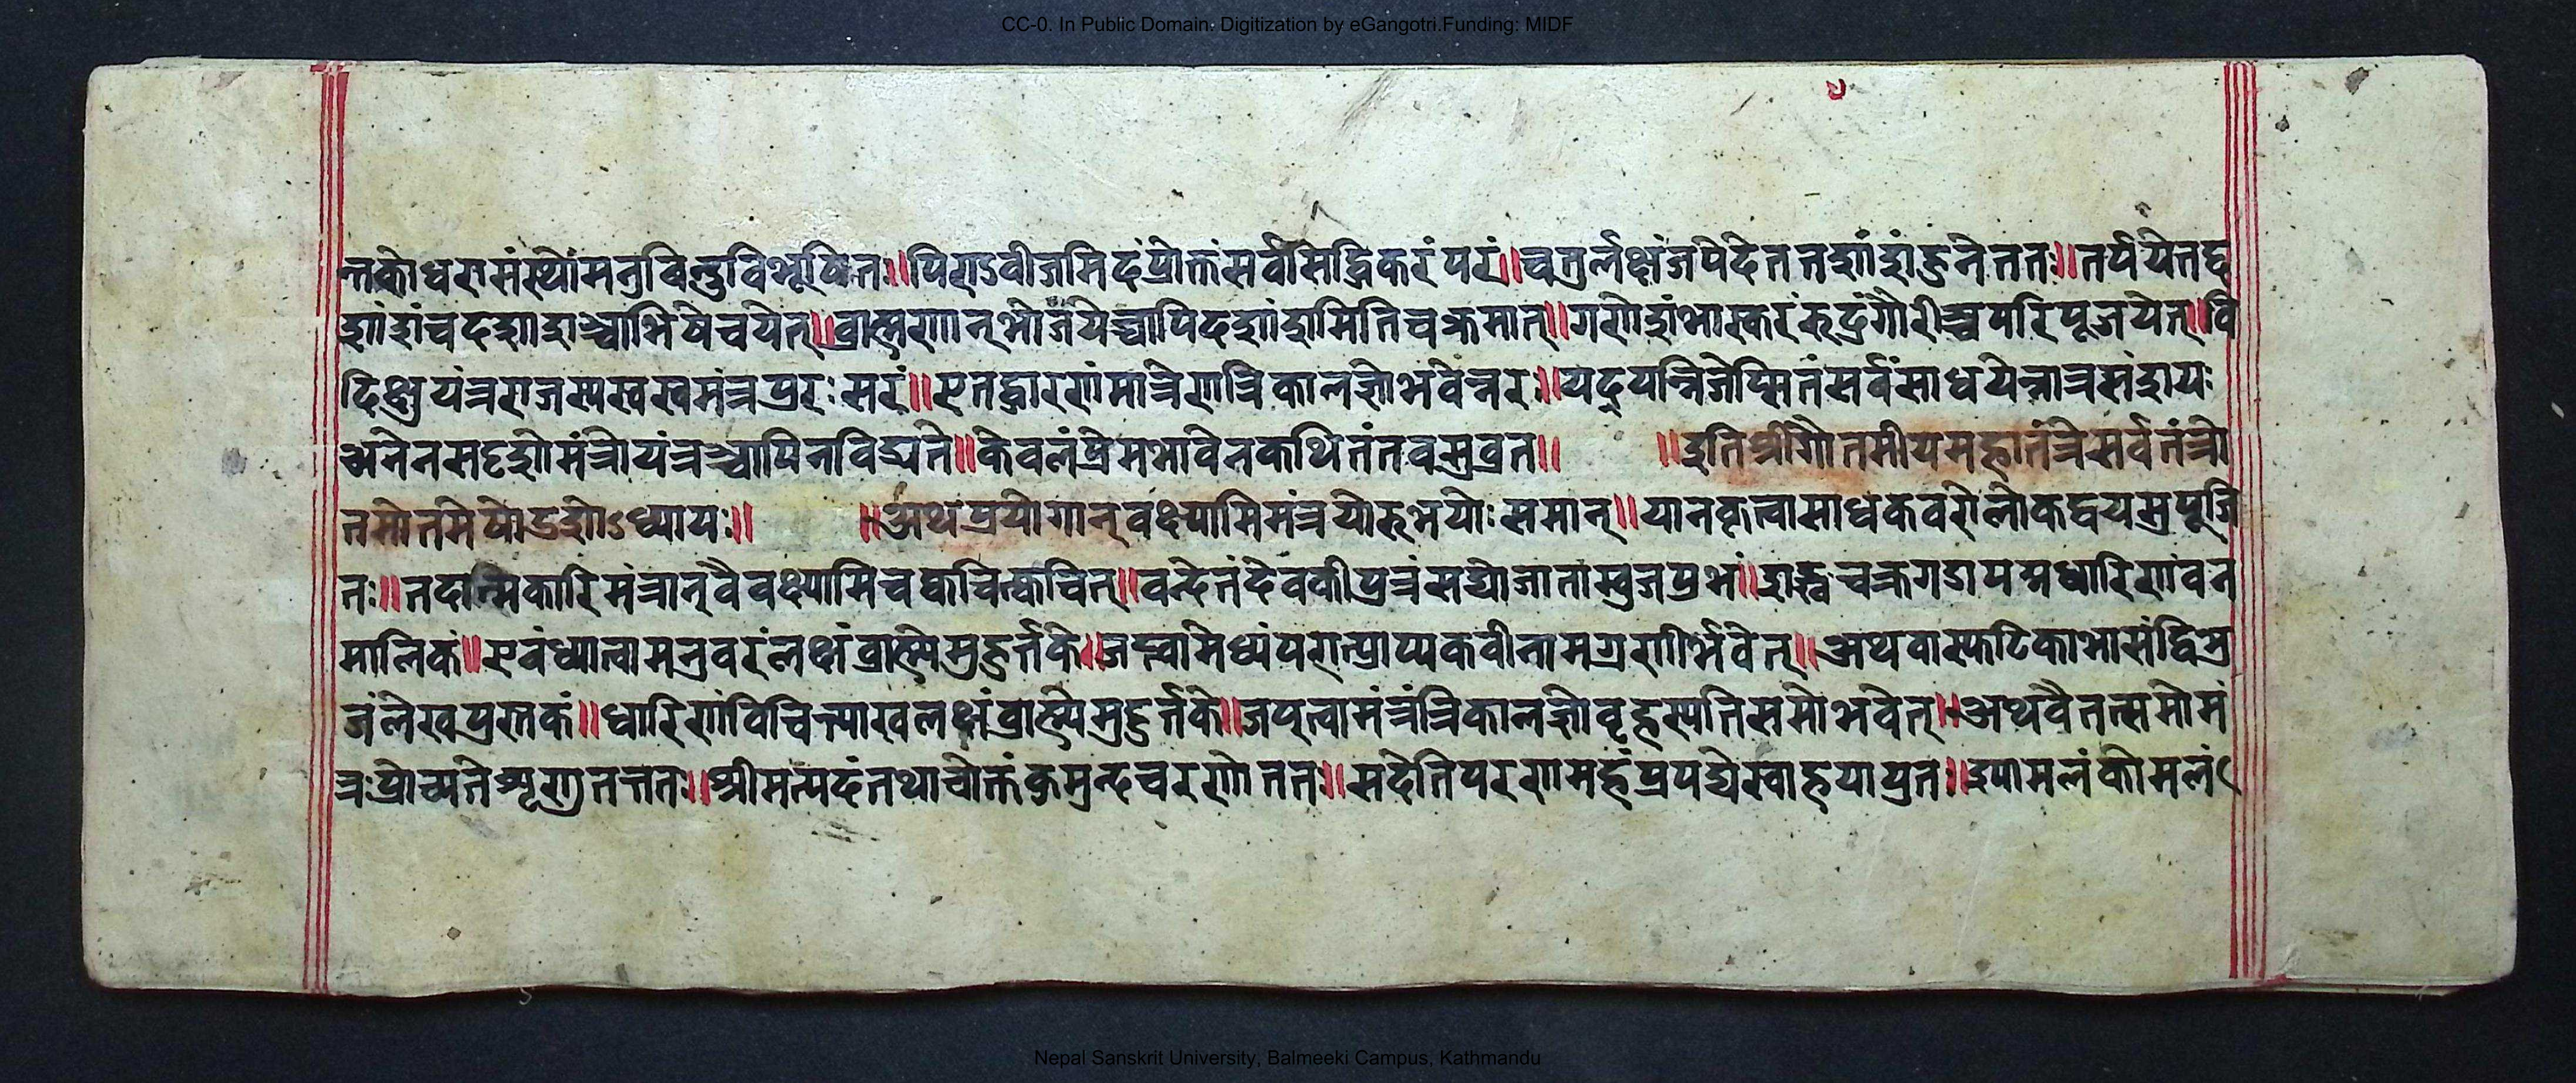 CC-0. In Public Domain. Digitization by eGangotri.Funding: MIDF
न्तकोधरासंस्थोमनुविन्दुविभूषितः॥पिण्डवीजमिदंप्रोक्तंसर्वसिद्धिकरंपरं॥चतुर्लक्षंजपेदेतत्तद्दशांशंहुनेततः॥तर्पयेत्तद्द
शांशंचदशांशञ्चाभिषेचयेत्॥ब्राह्मणान्भोजयेच्चापिदशांशमितिचक्रमात्॥गणेशंभास्करंरुद्रंगौरीञ्चपरिपूजयेत्॥वि
दिक्षुयंत्रराजस्यस्वस्वमंत्रपुरःसरं॥एतद्धारणमात्रेणत्रिकालज्ञोभवेन्नरः॥यद्यन्निजेप्सितंसर्वंसाधयेन्नात्रसंशयः
अनेनसदृशोमंत्रोयंत्रञ्चापिनविद्यते॥केवलंप्रेमभावेनकथितंतवसुव्रत॥ ॥इतिश्रीगौतमीयमहातंत्रेसर्वतंत्रो
त्तमोत्तमेषोडशोऽध्यायः॥ ॥अथप्रयोगान्वक्ष्यामिमंत्रयोरुभयोःसमान्॥यानकृत्वासाधकवरोलोकद्वयसुपूजि
तः॥तदात्मिकारिमंत्रान्वैवक्ष्यामिचक्वचित्क्वचित्॥वन्देतंदेवकीपुत्रंसद्योजाताम्बुजप्रभं॥शङ्खचक्रगदापद्मधारिणंवन
मालिकं॥एवंध्यात्वामनुवरंलक्षंब्राह्म्येमुहुर्त्तके॥जप्त्वामेध्यंपरांप्राप्यकवीनामग्रणीर्भवेत्॥अथवास्फटिकाभासंद्विभु
जंलेखपुस्तकं॥धारिणंविचिन्त्याखलक्षंब्राह्म्येमुहुर्त्तके॥जप्त्वामंत्रंत्रिकालज्ञोबृहस्पतिसमोभवेत्॥अथवैतत्समोमं
त्रःप्रोच्यतेशृणुतत्ततः॥श्रीमत्पदंतथाचोक्तंकुमुन्दचरणोततः॥सदेतिपरणमहंप्रपद्येस्वाहयायुतः॥श्यामलंकोमलं
Nepal Sanskrit University, Balmeeki Campus, Kathmandu